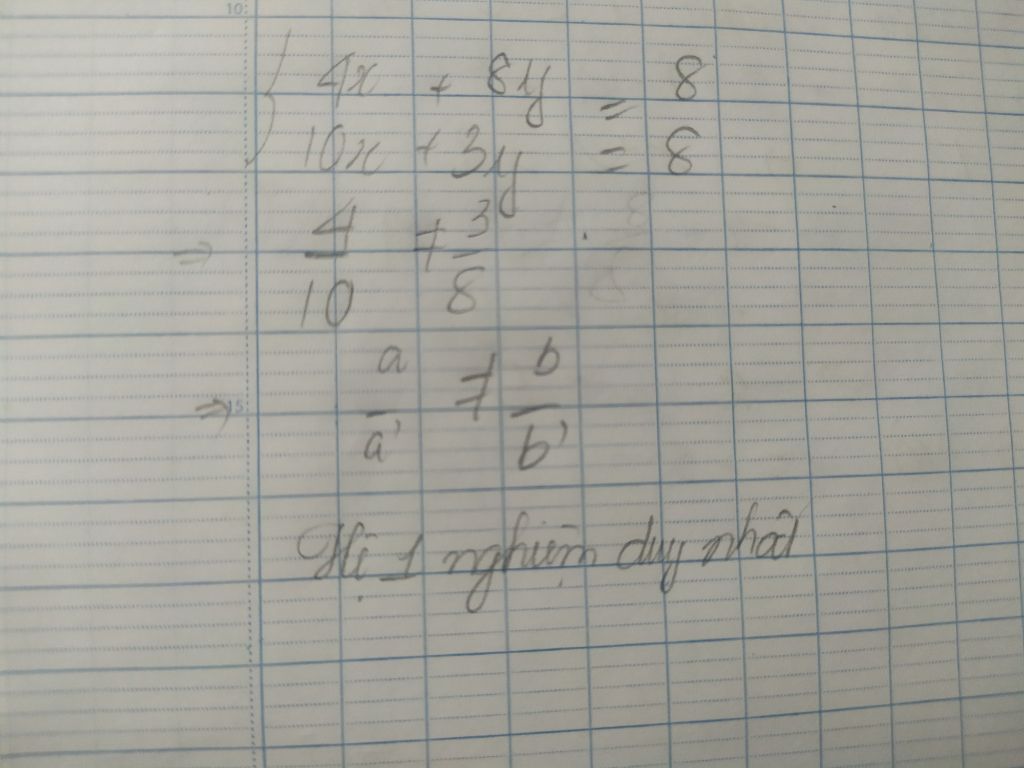 10
4x + 8y = 8
10x + 3y = 8
⇒ 4/10 ≠ 3/8
⇒ a/a' ≠ b/b'
15
Hệ 1 nghiệm duy nhất